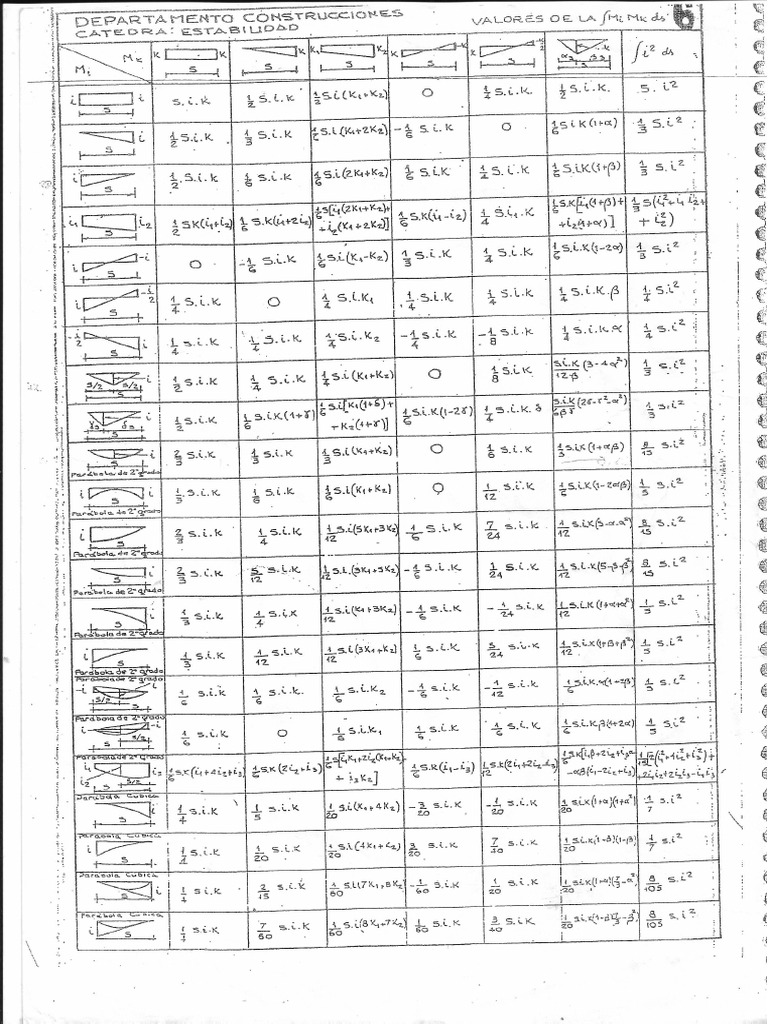 DEPARTAMENTO CONSTRUCCIONES
CATEDRA: ESTABILIDAD
VALORES DE LA ∫Mi Mk ds
6
Mi Mk
K K S
K S
K1 K2 S
K S
K S
K αs βs S
∫i² ds
i i S
S.i.K
1/2 S.i.K
1/2 S.i(K1+K2)
0
1/4 S.i.K
1/2 S.i.K.
S. i²
i S
1/2 S.i.K
1/3 S.i.K
1/6 S.i(K1+2K2)
-1/6 S.i.K
0
1/6 S i K(1+α)
1/3 S.i²
i S
1/2 S.i.K
1/6 S.i.K
1/6 S.i(2K1+K2)
1/6 S.i.K
1/4 S.i.K
1/6 S.i.K(1+β)
1/3 S.i²
i1 i2 S
1/2 S.K(i1+i2)
1/6 S.K(i1+2i2)
1/6 S[i1(2K1+K2)+
+i2(K1+2K2)]
1/6 S.K(i1-i2)
1/4 S.i1.K
1/6 S.K[i1(1+β)+
+i2(1+α)]
1/3 S(i1²+i1 i2+
+i2²)
i -i S
0
-1/6 S.i.K
1/6 S.i(K1-K2)
1/3 S.i.K
1/4 S.i.K
1/6 S.i.K(1-2α)
1/3 S.i²
i -i/2 S
1/4 S.i.K
0
1/4 S.i.K1
1/4 S.i.K
1/4 S.i.K
1/4 S.i.K.β
1/4 S.i²
-i/2 i S
1/4 S.i.K
1/4 S.i.K
1/4 S.i.K2
-1/4 S.i.K
-1/8 S.i.K
1/4 S.i.K.α
1/4 S.i²
i S/2 S/2 S
1/2 S.i.K
1/4 S.i.K
1/4 S.i(K1+K2)
0
1/8 S.i.K
S.i.K/12β (3-4α²)
1/3 S.i²
i S
1/2 S.i.K
1/6 S.i.K(1+γ)
1/6 S.i[K1(1+δ)+
+K2(1+γ)]
1/6 S.i.K(1-2γ)
1/4 S.i.K.δ
1/3 S.i²
i S
Parábola de 2° grado
2/3 S.i.K
1/3 S.i.K
1/3 S.i(K1+K2)
0
1/6 S.i.K
1/3 S.i.K(1+αβ)
8/15 S.i²
i i S
Parábola de 2° grado
1/3 S.i.K
1/6 S.i.K
1/6 S.i(K1+K2)
0
1/12 S.i.K
1/6 S.i.K(1-2αβ)
1/5 S.i²
i S
Parábola de 2° grado
2/3 S.i.K
1/4 S.i.K
1/12 S.i(5K1+3K2)
1/6 S.i.K
7/24 S.i.K
1/12 S.i.K(5-α-α²)
8/15 S.i²
i S
Parábola de 2° grado
2/3 S.i.K
5/12 S.i.K
1/12 S.i(3K1+5K2)
-1/6 S.i.K
1/24 S.i.K
1/12 S.i.K(5-β-β²)
8/15 S.i²
i S
Parábola de 2° grado
1/3 S.i.K
1/4 S.i.K
1/12 S.i(K1+3K2)
-1/6 S.i.K
-1/24 S.i.K
1/12 S.i.K(1+α+α²)
1/5 S.i²
i S
Parábola de 2° grado
1/3 S.i.K
1/12 S.i.K
1/12 S.i(3K1+K2)
1/6 S.i.K
5/24 S.i.K
1/12 S.i.K(1+β+β²)
1/5 S.i²
i S/2 S
Parábola de 2° grado
1/6 S.i.K
1/6 S.i.K.
1/6 S.i.K2
-1/6 S.i.K
-1/12 S.i.K
1/5 S.i²
i S/2 S
Parábola de 2° grado
1/6 S.i.K
0
1/6 S.i.K1
1/6 S.i.K
1/6 S.i.K
1/6 S.i.K.β(1+2α)
1/5 S.i²
i1 i2 i3 S/2 S
Parábola de 2° grado
1/6 S.K(i1+4i2+i3)
1/6 S.K(2i2+i3)
1/6 S[i1K1+2i2(K1+K2)+
+i3K2]
1/6 S.K(i1-i3)
1/6 S.K[i1β+2i2+i3α-
-αβ(i1-2i2+i3)]
+2i1i2+2i2i3-i1i3)
S
Parábola Cúbica
1/4 S.i.K
1/5 S.i.K
1/20 S.i(K1+4K2)
-3/20 S.i.K
-1/20 S.i.K
1/20 S.i.K(1+α)(1+α²)
1/7 S.i²
i S
Parábola Cúbica
1/4 S.i.K
1/20 S.i.K
1/20 S.i(4K1+K2)
3/20 S.i.K
1/7 S.i²
i S
Parábola Cúbica
1/4 S.i.K
2/15 S.i.K
1/60 S.i(7K1+8K2)
-1/60 S.i.K
1/20 S.i.K
8/105 S.i²
i S
Parábola Cúbica
1/4 S.i.K
7/60 S.i.K
1/60 S.i(8K1+7K2)
1/60 S.i.K
8/105 S.i²